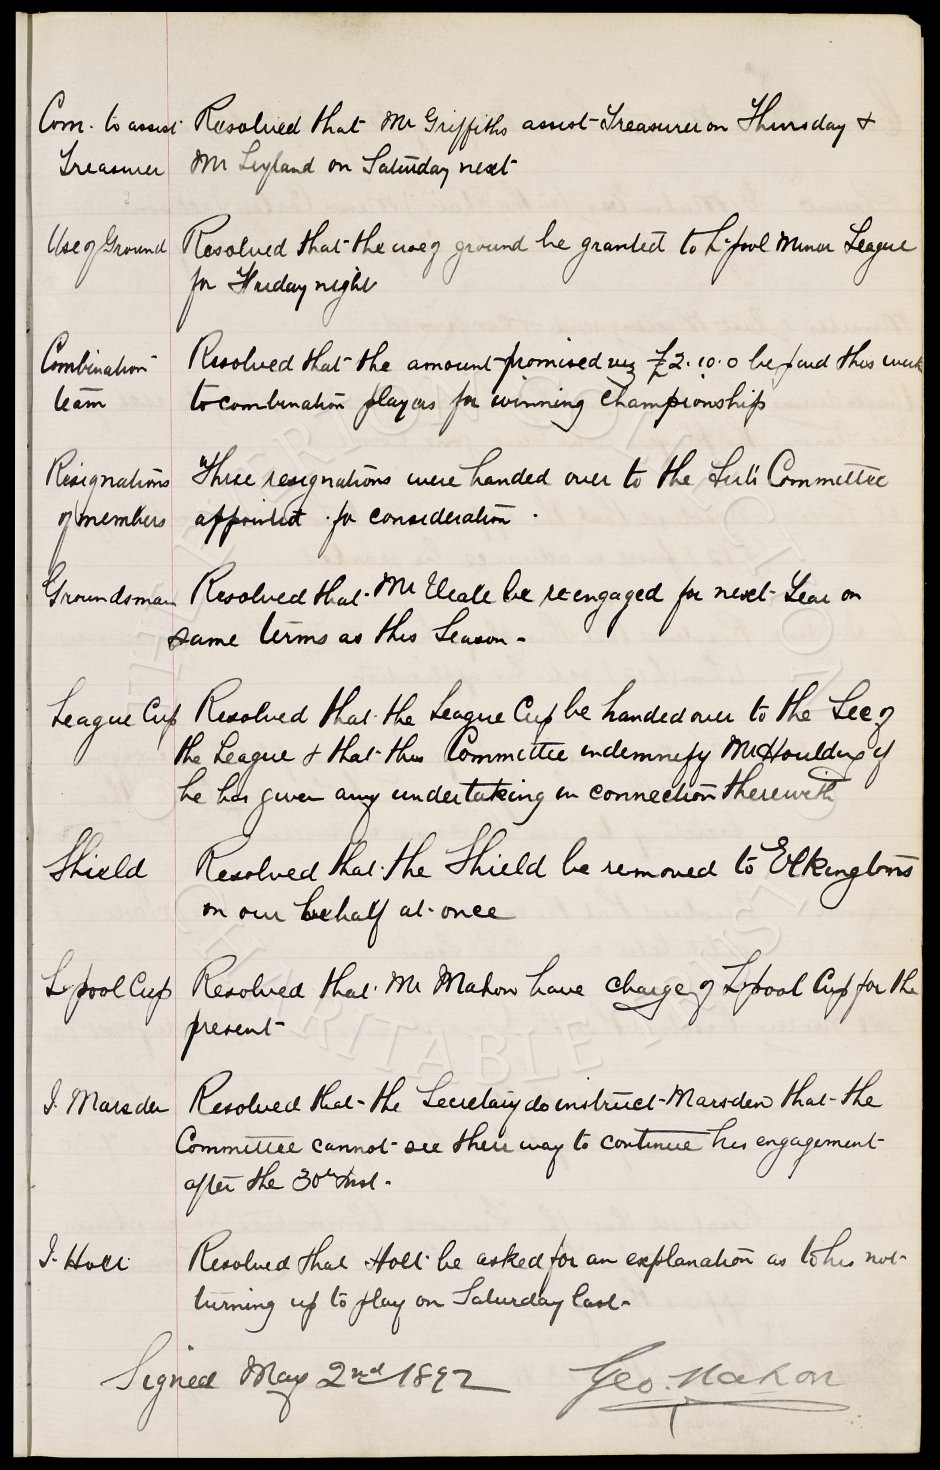 Com. to assist Resolved that Mr Griffiths assist Treasurer on Thursday &
Treasurer Mr Leyland on Saturday next
Use of Ground Resolved that the use of ground be granted to L'pool Minor League
for Friday night
Combination Resolved that the amount promised viz £2.10.0 be paid this week
team to combination players for winning championship
Resignations Three resignations were handed over to the Committee
of members appointed for consideration.
Groundsman Resolved that Mr be re-engaged for next Year on
same terms as this Season -
League Cup Resolved that the League Cup be handed over to the Sec of
the League & that this Committee indemnify Mr Houlding if
he has given any undertaking in connection therewith
Shield Resolved that the Shield be removed to Elkingtons
on our behalf at once
L'pool Cup Resolved that Mr Mahon have charge of L'pool Cup for the
present
J. Marsden Resolved that the Secretary do instruct Marsden that the
Committee cannot see their way to continue his engagement
after the 30th inst.
J. Holt Resolved that Holt be asked for an explanation as to his not
turning up to play on Saturday last.
Signed May 2nd 1892 Geo. Mahon
EVERTON COLLECTION
CHARITABLE TRUST